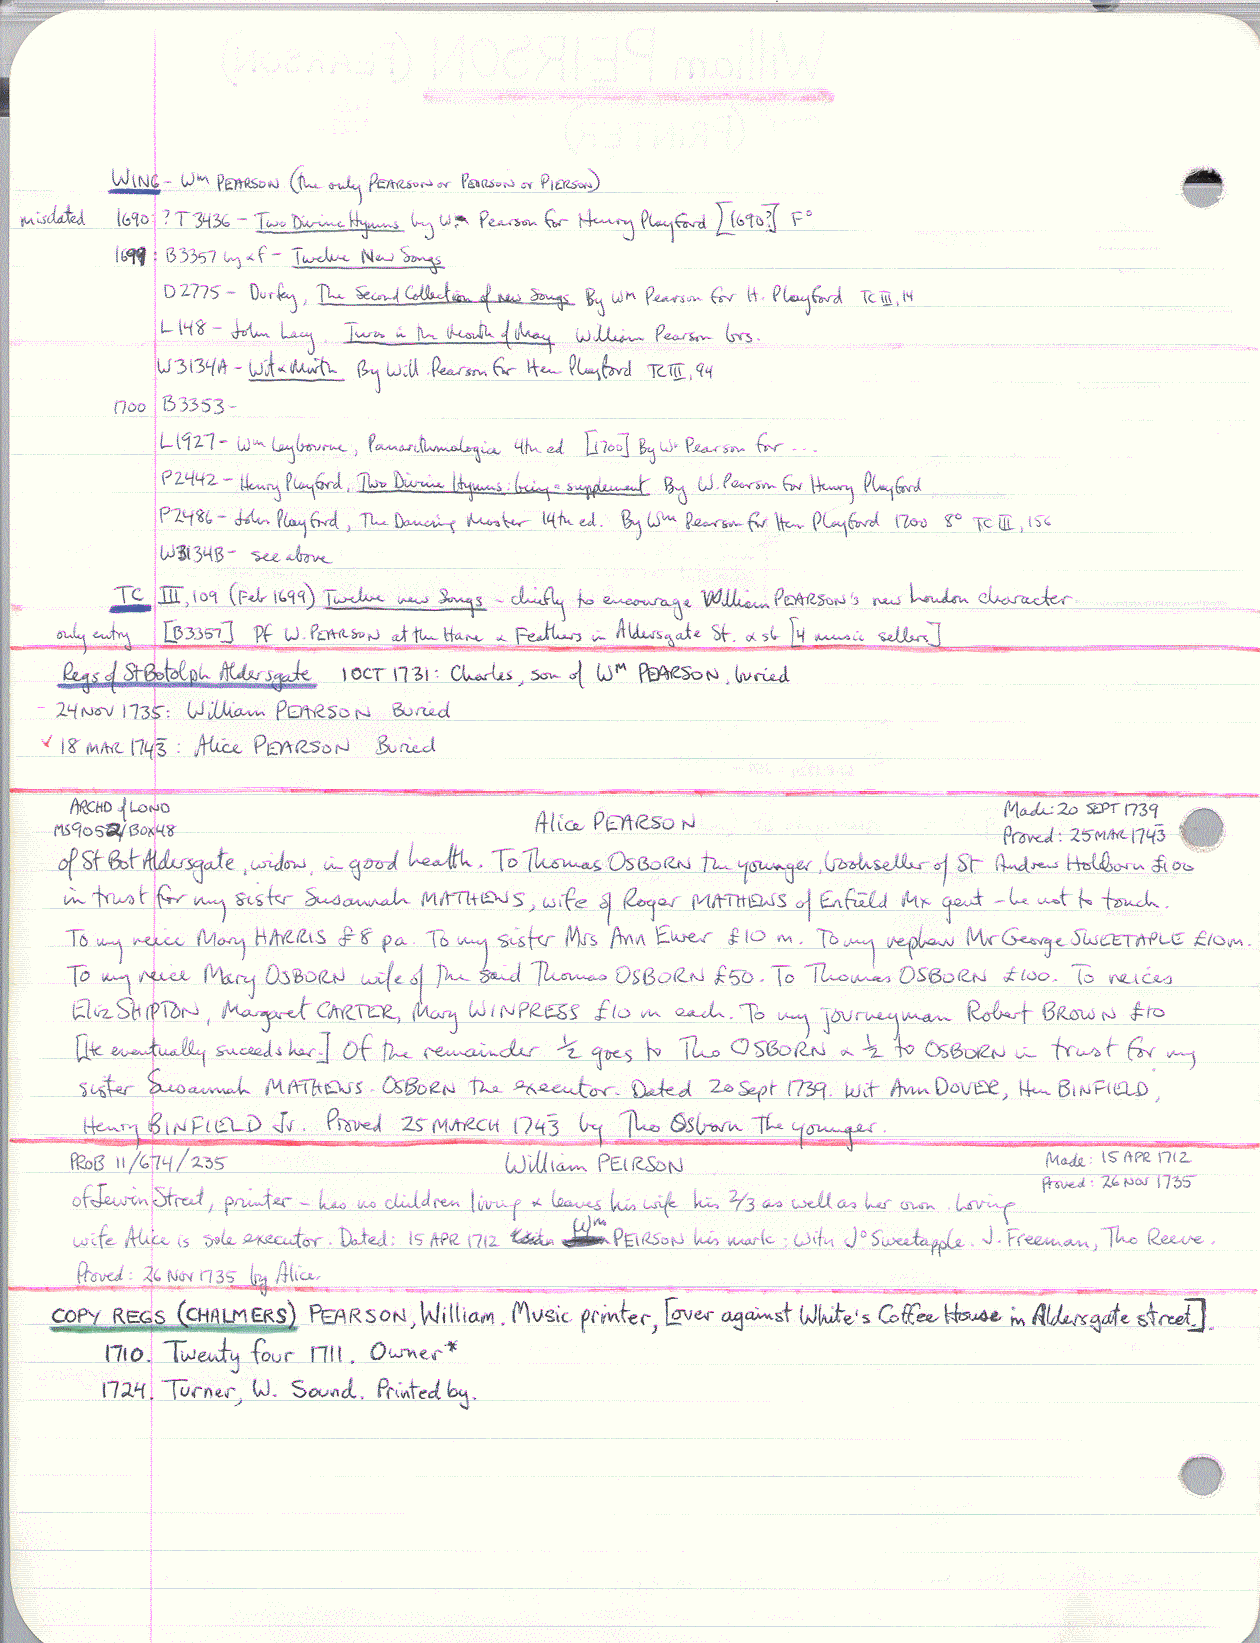 WING - Wm PEARSON (the only PEARSON or PEIRSON or PIERSON)
misdated 1690: ? T3436 - Two Divine Hymns by W. Pearson for Henry Playford [1690?] F°
1699: B3357 by & f - Twelve New Songs
D2775 - Durfey, The Second Collection of new Songs By Wm Pearson for H. Playford TC III, 14
L148 - John Lacy, in the Month of May William Pearson
W3134A - Wit & Mirth By Will. Pearson for Hen Playford TC III, 94
1700 B3353 -
L1927 - Wm Leybourne, Panarithmologia 4th ed [1700] By W. Pearson for ...
P2442 - Henry Playford, Two Divine Hymns: being a supplement By W. Pearson for Henry Playford
P2486 - John Playford, The Dancing Master 14th ed. By Wm Pearson for Hen Playford 1700 8° TC III, 156
W3134B - see above
TC III, 109 (Feb 1699) Twelve new Songs - chiefly to encourage William PEARSON's new London character
only entry [B3357] Pf W. PEARSON at the Hare & Feathers in Aldersgate St. & sb [4 music sellers]
Regs of St Botolph Aldersgate 1 OCT 1731: Charles, son of Wm PEARSON, buried
- 24 NOV 1735: William PEARSON Buried
✓ 18 MAR 1743: Alice PEARSON Buried
ARCHD of LOND
MS9052/Box48
Alice PEARSON
Made: 20 SEPT 1739
Proved: 25 MAR 1743
of St Bot Aldersgate, widow, in good health. To Thomas OSBORN the younger, bookseller of St Andrew Holborn £100
in trust for my sister Susannah MATHEWS, wife of Roger MATHEWS of Enfield Mx gent - he not to touch.
To my neice Mary HARRIS £8 pa. To my sister Mrs Ann Ewer £10 m. To my nephew Mr George SWEETAPLE £10m.
To my neice Mary OSBORN wife of the said Thomas OSBORN £50. To Thomas OSBORN £100. To neices
Eliz SHIPTON, Margaret CARTER, Mary WINPRESS £10 m each. To my journeyman Robert BROWN £10
[He eventually suceeds her.] Of the remainder ½ goes to Tho OSBORN & ½ to OSBORN in trust for my
sister Susannah MATHEWS. OSBORN the executor. Dated 20 Sept 1739. Wit Ann DOVER, Hen BINFIELD,
Henry BINFIELD Jr. Proved 25 MARCH 1743 by Tho Osborn the younger.
PROB 11/674/235
William PEIRSON
Made: 15 APR 1712
Proved: 26 NOV 1735
of Jewin Street, printer - has no children living & leaves his wife his 2/3 as well as her own. Loving
wife Alice is sole executor. Dated: 15 APR 1712 Wm PEIRSON his mark; With Jo Sweetapple. J. Freeman, Tho Reeve.
Proved: 26 NOV 1735 by Alice.
COPY REGS (CHALMERS) PEARSON, William. Music printer, [over against White's Coffee House in Aldersgate street.]
1710. Twenty four 1711. Owner*
1724. Turner, W. Sound. Printed by.